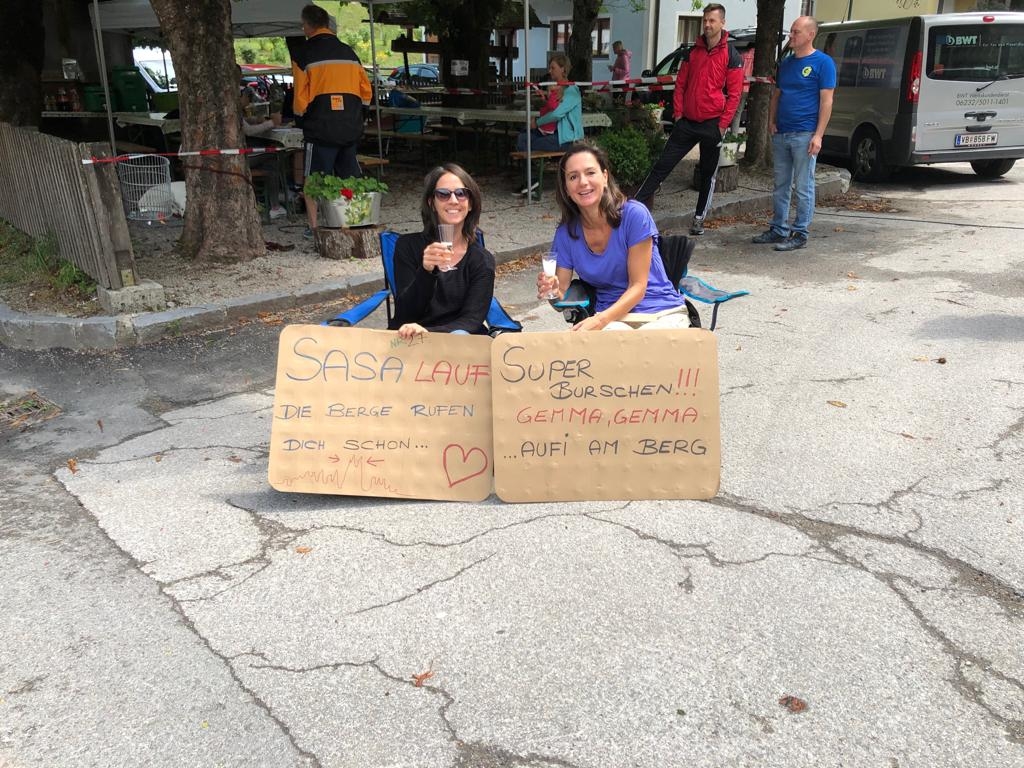 NR. 27
SASA LAUF
DIE BERGE RUFEN
DICH SCHON...
SUPER
BURSCHEN!!!
GEMMA, GEMMA
...AUFI AM BERG
BWT
BWT
BWT Werkskundendienst
06232/5011-1401
VB 858 FW